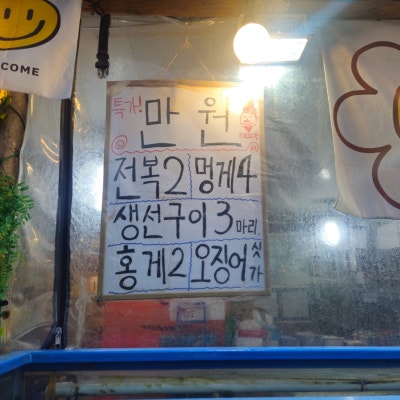 COME
특가!
만 원
전복2 멍게4
생선구이 3 마리
홍게2 오징어 싯가